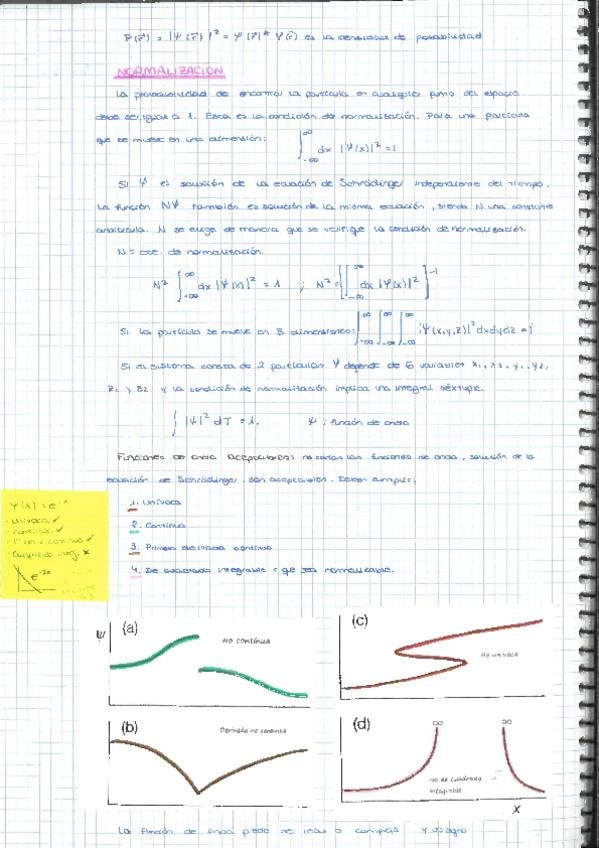 P(r⃗) = |Ψ(r⃗)|² = Ψ(r⃗)* Ψ(r⃗) es la densidad de probabilidad
NORMALIZACIÓN
La probabilidad de encontrar la partícula en cualquier punto del espacio
debe ser igual a 1. Esta es la condición de normalización. Para una partícula
que se mueve en una dimensión: ∫_{-∞}^{∞} dx |Ψ(x)|² = 1
Si Ψ es solución de la ecuación de Schrödinger independiente del tiempo,
la función NΨ también es solución de la misma ecuación, siendo N una constante
arbitraria. N se elige de manera que se verifique la condición de normalización.
N = cte. de normalización.
N² ∫_{-∞}^{∞} dx |Ψ(x)|² = 1 ; N² = [∫_{-∞}^{∞} dx |Ψ(x)|²]^{-1}
Si la partícula se mueve en 3 dimensiones: ∫_{-∞}^{∞} ∫_{-∞}^{∞} ∫_{-∞}^{∞} |Ψ(x,y,z)|² dxdydz = 1
Si el sistema consta de 2 partículas Ψ depende de 6 variables x₁, x₂, y₁, y₂,
z₁ y z₂ y la condición de normalización implica una integral séxtuple.
∫ |Ψ|² dT = 1. Ψ: función de onda
Funciones de onda aceptables: no todas las funciones de onda, solución de la
ecuación de Schrödinger, son aceptables. Deben cumplir:
1. Unívoca
2. Continua
3. Primera derivada continua
4. De cuadrado integrable = que sea normalizable.
Ψ(x) = e⁻ˣ
· Unívoca ✓
· continua ✓
· Cuadrado integ. ✗
Ψ
(a)
No continua
(b)
Derivada no continua
(c)
No unívoca
(d)
∞ ∞
No de cuadrado
integrable
X
La función de onda puede ser real o compleja y